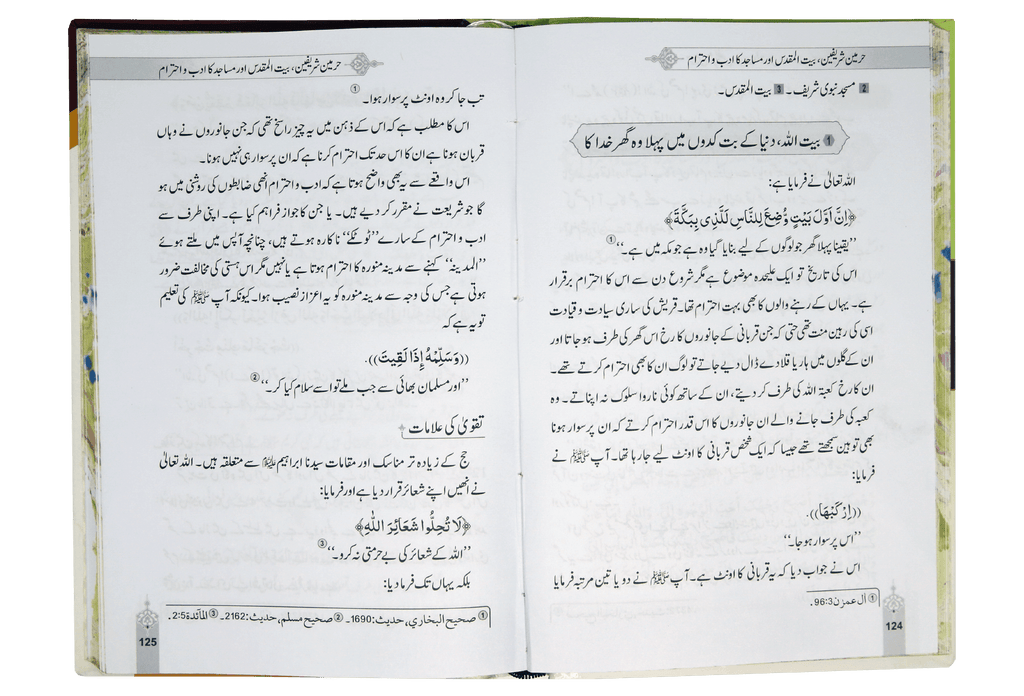 حرمین شریفین، بیت المقدس اور مساجد کا ادب و احترام
2 مسجد نبوی شریف۔ 3 بیت المقدس۔
1 بیت اللہ، دنیا کے بت کدوں میں پہلا وہ گھر خدا کا
اللہ تعالیٰ نے فرمایا ہے:
﴿اِنَّ اَوَّلَ بَيْتٍ وُّضِعَ لِلنَّاسِ لَلَّذِي بِبَكَّةَ﴾
’’یقیناً پہلا گھر جو لوگوں کے لیے بنایا گیا وہ ہے جو مکہ میں ہے۔‘‘①
اس کی تاریخ تو ایک علیحدہ موضوع ہے مگر شروع دن سے اس کا احترام برقرار
ہے۔ یہاں کے رہنے والوں کا بھی بہت احترام تھا۔ قریش کی ساری سیادت و قیادت
اسی کی رہین منت تھی حتی کہ جن قربانی کے جانوروں کا رخ اس گھر کی طرف ہو جاتا اور
ان کے گلوں میں ہار یا قلادے ڈال دیے جاتے تو لوگ ان کا بھی احترام کرتے تھے۔
ان کا رخ کعبۃ اللہ کی طرف کر دیتے، ان کے ساتھ کوئی ناروا سلوک نہ اپناتے۔ وہ
کعبہ کی طرف جانے والے ان جانوروں کا اس قدر احترام کرتے کہ ان پر سوار ہونا
بھی توہین سمجھتے تھے جیسا کہ ایک شخص قربانی کا اونٹ لیے جا رہا تھا۔ آپ ﷺ نے
فرمایا:
((اِرْكَبْهَا)).
’’اس پر سوار ہو جا۔‘‘
اس نے جواب دیا کہ یہ قربانی کا اونٹ ہے۔ آپ ﷺ نے دو یا تین مرتبہ فرمایا
① اٰل عمرٰن 96:3.
124
حرمین شریفین، بیت المقدس اور مساجد کا ادب و احترام
تب جا کر وہ اونٹ پر سوار ہوا۔①
اس کا مطلب ہے کہ اس کے ذہن میں یہ چیز راسخ تھی کہ جن جانوروں نے وہاں
قربان ہونا ہے ان کا اس حد تک احترام کرنا ہے کہ ان پر سوار ہی نہیں ہونا۔
اس واقعے سے یہ بھی واضح ہوتا ہے کہ ادب و احترام انھی ضابطوں کی روشنی میں ہو
گا جو شریعت نے مقرر کر دیے ہیں۔ یا جن کا جواز فراہم کیا ہے۔ اپنی طرف سے
ادب و احترام کے سارے ’’ٹوٹکے‘‘ ناکارہ ہوتے ہیں، چنانچہ آپس میں ملتے ہوئے
’’المدینہ‘‘ کہنے سے مدینہ منورہ کا احترام ہوتا ہے یا نہیں مگر اس ہستی کی مخالفت ضرور
ہوتی ہے جس کی وجہ سے مدینہ منورہ کو یہ اعزاز نصیب ہوا۔ کیونکہ آپ ﷺ کی تعلیم
تو یہ ہے کہ
((وَسَلِّمْهُ إِذَا لَقِيتَ)).
’’اور مسلمان بھائی سے جب ملے تو اسے سلام کیا کر۔‘‘②
تقویٰ کی علامات
حج کے زیادہ تر مناسک اور مقامات سیدنا ابراہیم علیہ السلام سے متعلقہ ہیں۔ اللہ تعالیٰ
نے انھیں اپنے شعائر قرار دیا ہے اور فرمایا:
﴿لَا تُحِلُّوا شَعَائِرَ اللّٰهِ﴾
’’اللہ کے شعائر کی بے حرمتی نہ کرو۔‘‘③
بلکہ یہاں تک فرما دیا:
① صحيح البخاري، حديث: 1690۔ ② صحيح مسلم، حديث: 2162۔ ③ المآئدة 2:5.
125